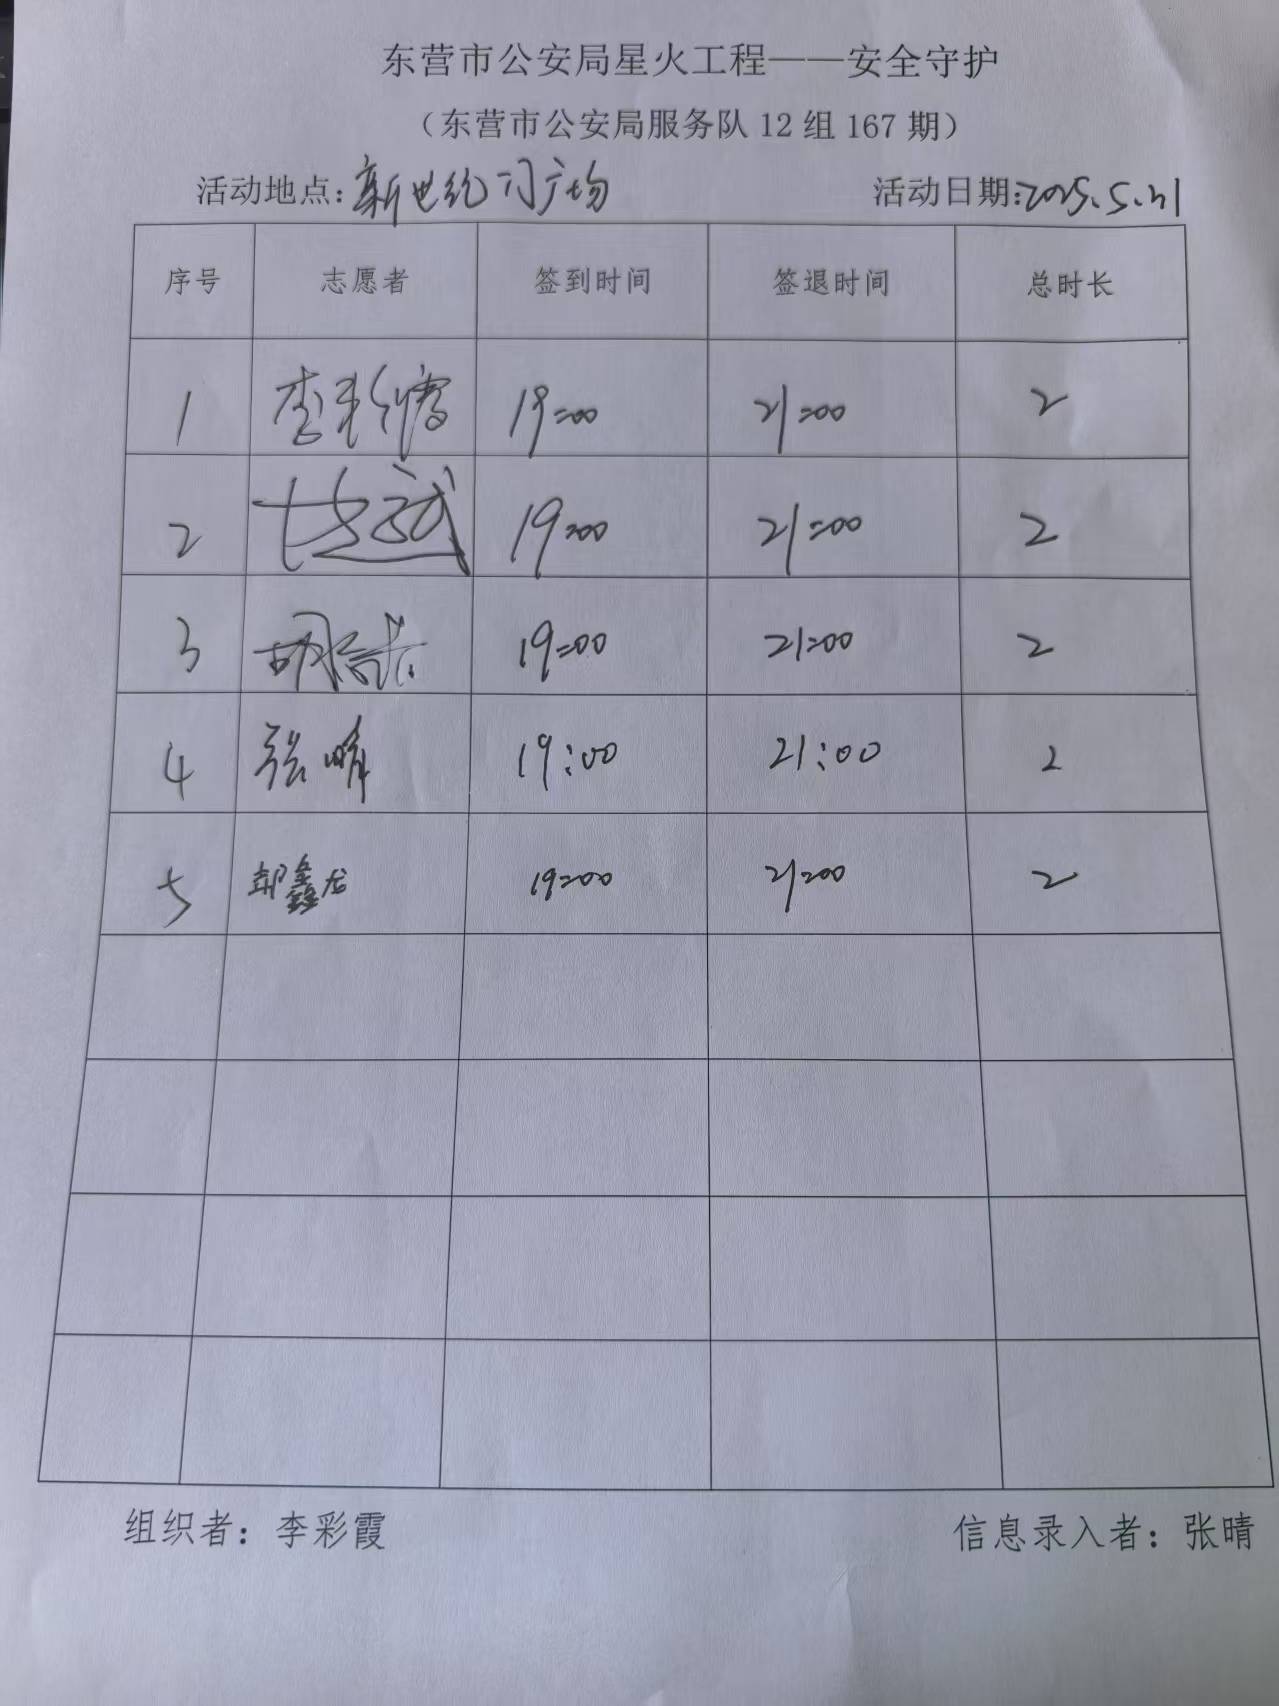 东营市公安局星火工程——安全守护
（东营市公安局服务队 12 组 167 期）
活动地点：新世纪门广场 活动日期：2025.5.21
序号 志愿者 签到时间 签退时间 总时长
1 李彩霞 19:00 21:00 2
2 19:00 21:00 2
3 19:00 21:00 2
4 张晴 19:00 21:00 2
5 郭鑫龙 19:00 21:00 2
组织者：李彩霞 信息录入者：张晴